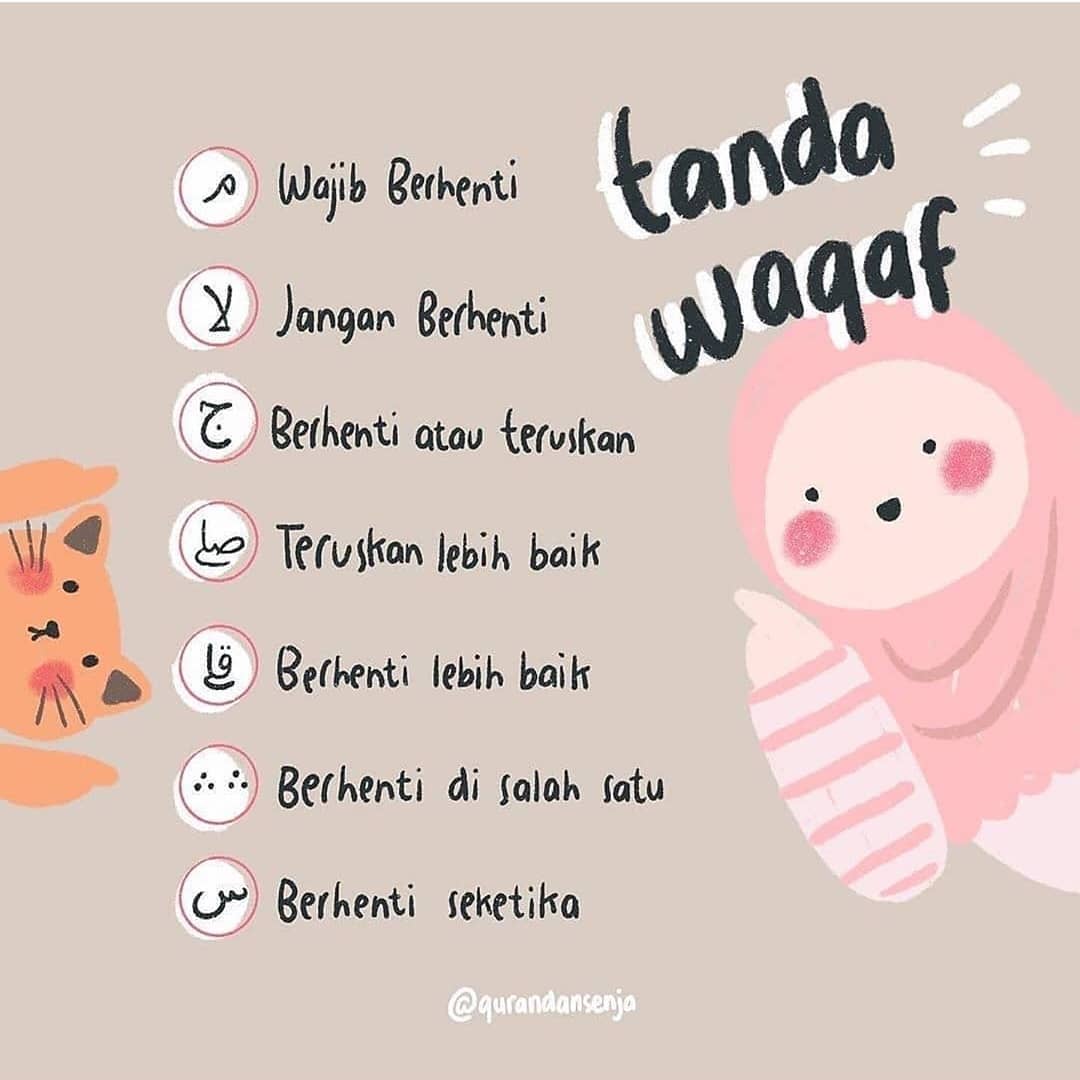 tanda
waqaf
م Wajib Berhenti
لا Jangan Berhenti
ج Berhenti atau teruskan
صلے Teruskan lebih baik
قلے Berhenti lebih baik
∴ ∴ Berhenti di salah satu
س Berhenti seketika
@qurandansenja